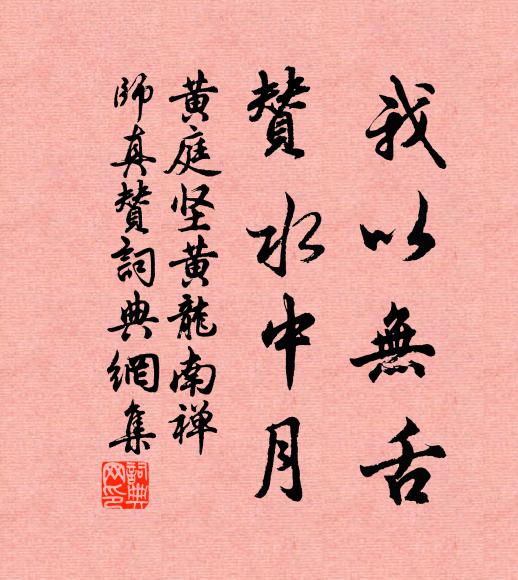 我以無舌
贊水中月
黄庭坚黄龍南禅
師真贊詞典網集
詞典网印